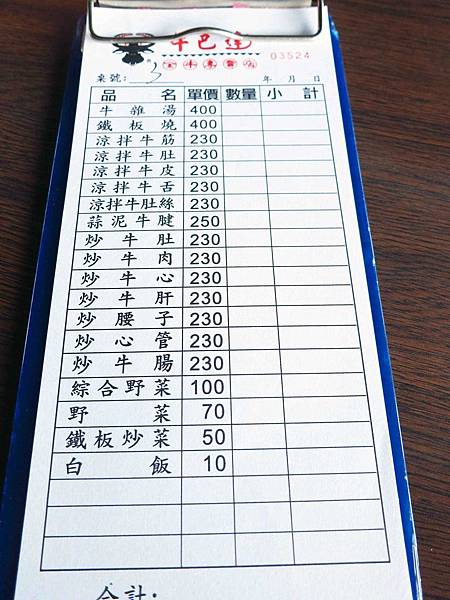 03524
桌號: 3 年 月 日
品名 單價 數量 小計
牛雜湯 400
鐵板燒 400
涼拌牛筋 230
涼拌牛肚 230
涼拌牛皮 230
涼拌牛舌 230
涼拌牛肚絲 230
蒜泥牛腱 250
炒牛肚 230
炒牛肉 230
炒牛心 230
炒牛肝 230
炒腰子 230
炒心管 230
炒牛腸 230
綜合野菜 100
野菜 70
鐵板炒菜 50
白飯 10
合計: